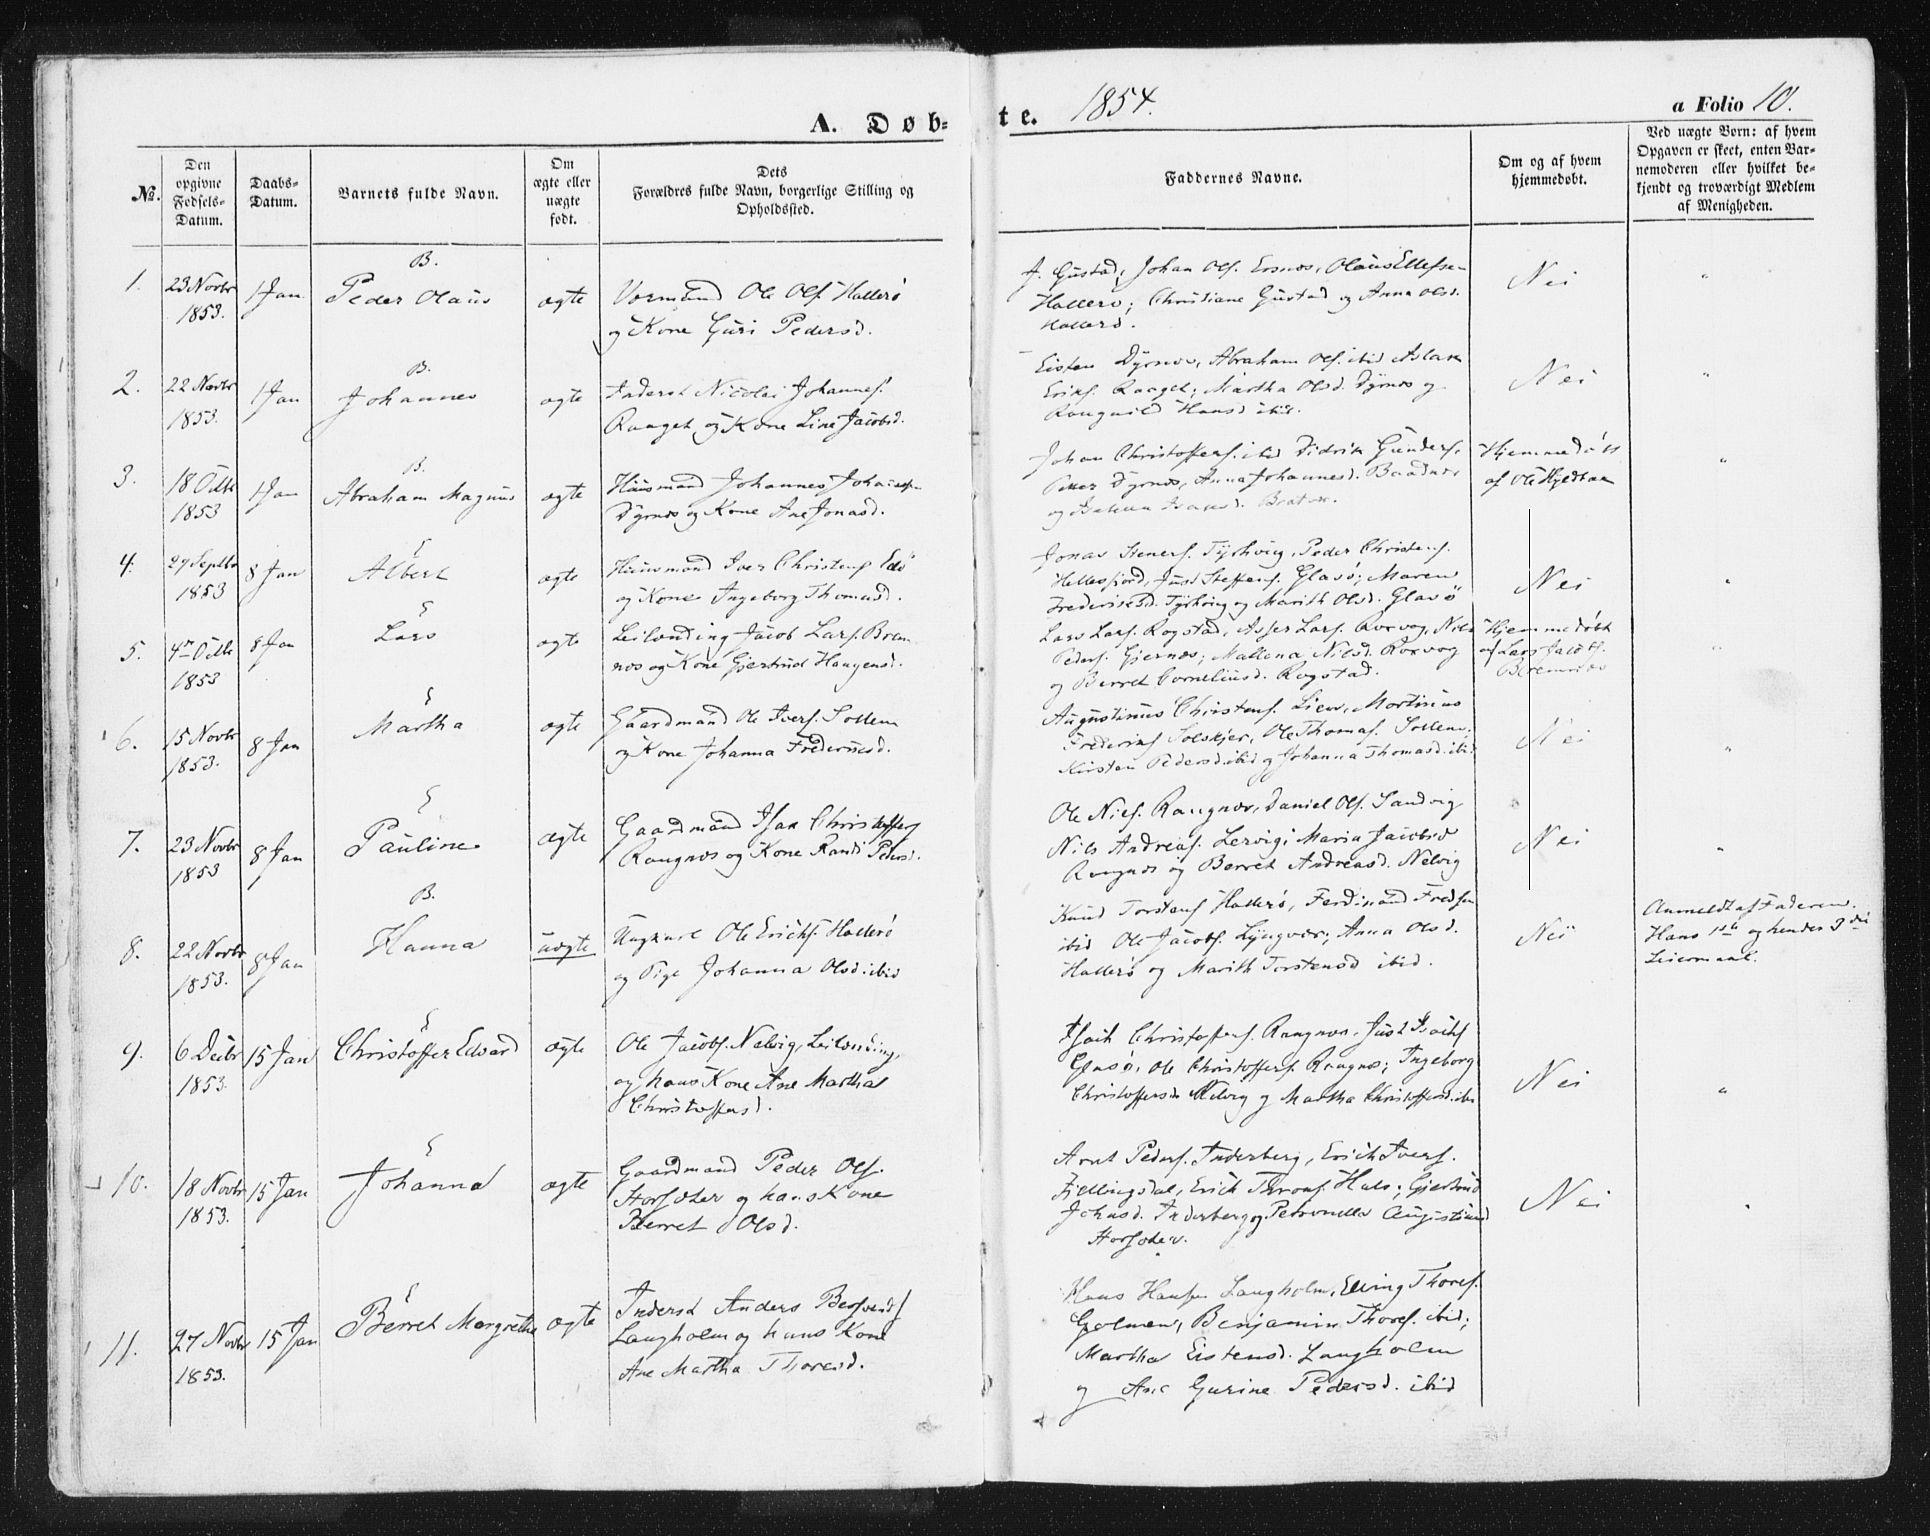 A. Døb-
te. 1854.
a Folio 10.
No.
Den opgivne Fødsels-Datum.
Daabs-Datum.
Barnets fulde Navn.
Om ægte eller uægte født.
Dets Forældres fulde Navn, borgerlige Stilling og Opholdssted.
Faddernes Navne.
Om og af hvem hjemmedøbt.
Ved uægte Børn: af hvem Opgaven er skeet, enten Barnemoderen eller hvilket bekjendt og troværdigt Medlem af Menigheden.
B.
1. 23 Novbr 1853. 1 Jan Peder Olaus ægte
Ole Ols. Hallerø
og Kone Guri Pedersd.
J. Gustad, Johan Ols. Ersnæs, Olaus Ellefsen
Hallerø; Christiane Gustad og Anna Olsd.
Hallerø.
Nei "
B.
2. 22 Novbr 1853. 1 Jan Johannes ægte
Inderst Nicolai Johannes.
Raaget og Kone Line Jacobsd.
Eisten Dyrnæs, Abraham Ols. ibid Aslak
Eriks. Raaget; Martha Olsd. Dyrnæs og
Raugnild Hansd ibid.
Nei "
B.
3. 18 Octbr 1853 1 Jan Abraham Magnus ægte
Huusmand Johannes Johans.
Dyrnæs og Kone Ane Jonasd.
Johan Christoffers. ibid Didrik Gunders.
Petter Dyrnæs, Anna Johannesd. Baadnæs
og
Hjemmedøbt
af Ole
"
E
4. 29 Septbr 1853 8 Jan Albert ægte
Huusmand Iver Christens. Edø
og Kone Ingeborg Thomasd.
Jonas Steners. Tyrhoug, Peder Christens.
Hellesfjord, Just Steffens. Glasø; Maren
Frederiksd. Tyrhoug og Marith Olsd. Glasø
Nei "
E
5. 4de Octbr 1853 8 Jan Lars ægte
Leilænding Jacob Lars. Brem
næs og Kone Gjertrud Haugensd.
Lars Lars. Rogstad, Asser Lars. Roxvog, Nils
Peders. Gjernæs; Mallena Nilsd. Roxvog
og Berret Corneliusd. Rogstad.
Hjemmedøbt
af Lars Jacobs.
Bremnæs
"
E
6. 15 Novbr 1853. 8 Jan Martha ægte
Gaardmand Ole Ivers. Sollem
og Kone Johanna Frederiksd.
Augustinus Christens. Lien, Mortinus
Frederiks. Solskjer, Ole Thomas. Sollem,
Kirsten Pedersd. ibid og Johanna Thomasd. ibid
Nei "
E
7. 23 Novbr 1853 8 Jan Pauline ægte
Gaardmand Isak Christoffers
Raugnæs og Kone Randi Petersd.
Ole Niels. Raugnæs, Daniel Ols. Sandvig
Nils Andreas. Lervig; Maria Jacobsd
Raugnæs og Berret Andreasd. Nelvig
Nei "
B.
8. 22 Novbr 1853. 8 Jan Hanna uægte
Ungkarl Ole Ericks. Hallerø
og Pige Johanna Olsd. ibid
Knud Torstens Hallerø, Ferdinand Fredsen
ibid Ole Jacobs. Lyngvær; Anna Olsd.
Hallerø og Marith Torstensd ibid.
Nei
Anmeldt af Faderen.
Hans 1ste og hendes 3die
Leiermaal.
E
9. 6 Decbr 1853. 15 Jan Christoffer Edvard ægte
Ole Jacobs. Nelvig, Leilænding,
og hans Kone Ane Martha
Christoffersd.
Isach Christoffers. Raugnæs, Just Isachs
Glasø, Ole Christoffers. Raugnæs; Ingeborg
Christoffersd Nelvig og Martha Christoffersd. ibid
Nei "
E
10. 18 Novbr 1853. 15 Jan Johanna ægte
Gaardmand Peder Ols.
Storsæter og hans Kone
Berret Olsd.
Arnt Peders. Inderberg, Erich Ivers.
Fjellingsdal, Erich Throns. Hals; Gjertrud
Johnsd. Inderberg og Petronella Augustinusd
Storsæter.
Nei "
E
11. 27 Novbr 1853. 15 Jan Berret Margrethe ægte
Inderst Anders
Langholm og hans Kone
Ane Martha Thoresd.
Hans Hansen Langholm, Elling Thores.
Golmen, Benjamin Thores. ibid;
Martha Eistensd. Langholm
og Ane Gurine Pedersd. ibid